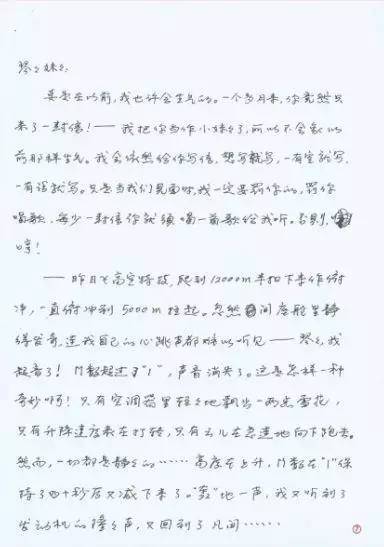 琴々妹:
要是在以前,我也许会生气的。一个多月来,你竟然只
来了一封信!——我把你当作小妹々了,所以不会象以
前那样生气。我会依然给你写信,想写就写,一有空就写,
一有话就写。只是当我们见面时,我一定要罚你的,罚你
唱歌,每少一封信你就须唱一首歌给我听。否则,
哼!
——昨日飞高空特技,爬到12000m半扣下来作俯
冲,一直俯冲到5000m拉起。忽然间座舱里静
得出奇,连我自己的心跳声都难以听见——琴々,我
超音了!M数超过了"1",声音消失了。这是怎样一种
奇妙啊!只有空调器里轻々地飘出一两点雪花,
只有升降速度表在打转,只有云儿在急速地向下跑去。
然而,一切都是静々的……高度在上升,M数在"1"保
持了四十秒后又减下来了。"轰"地一声,我又听到了
发动机的隆々声,又回到了凡间……